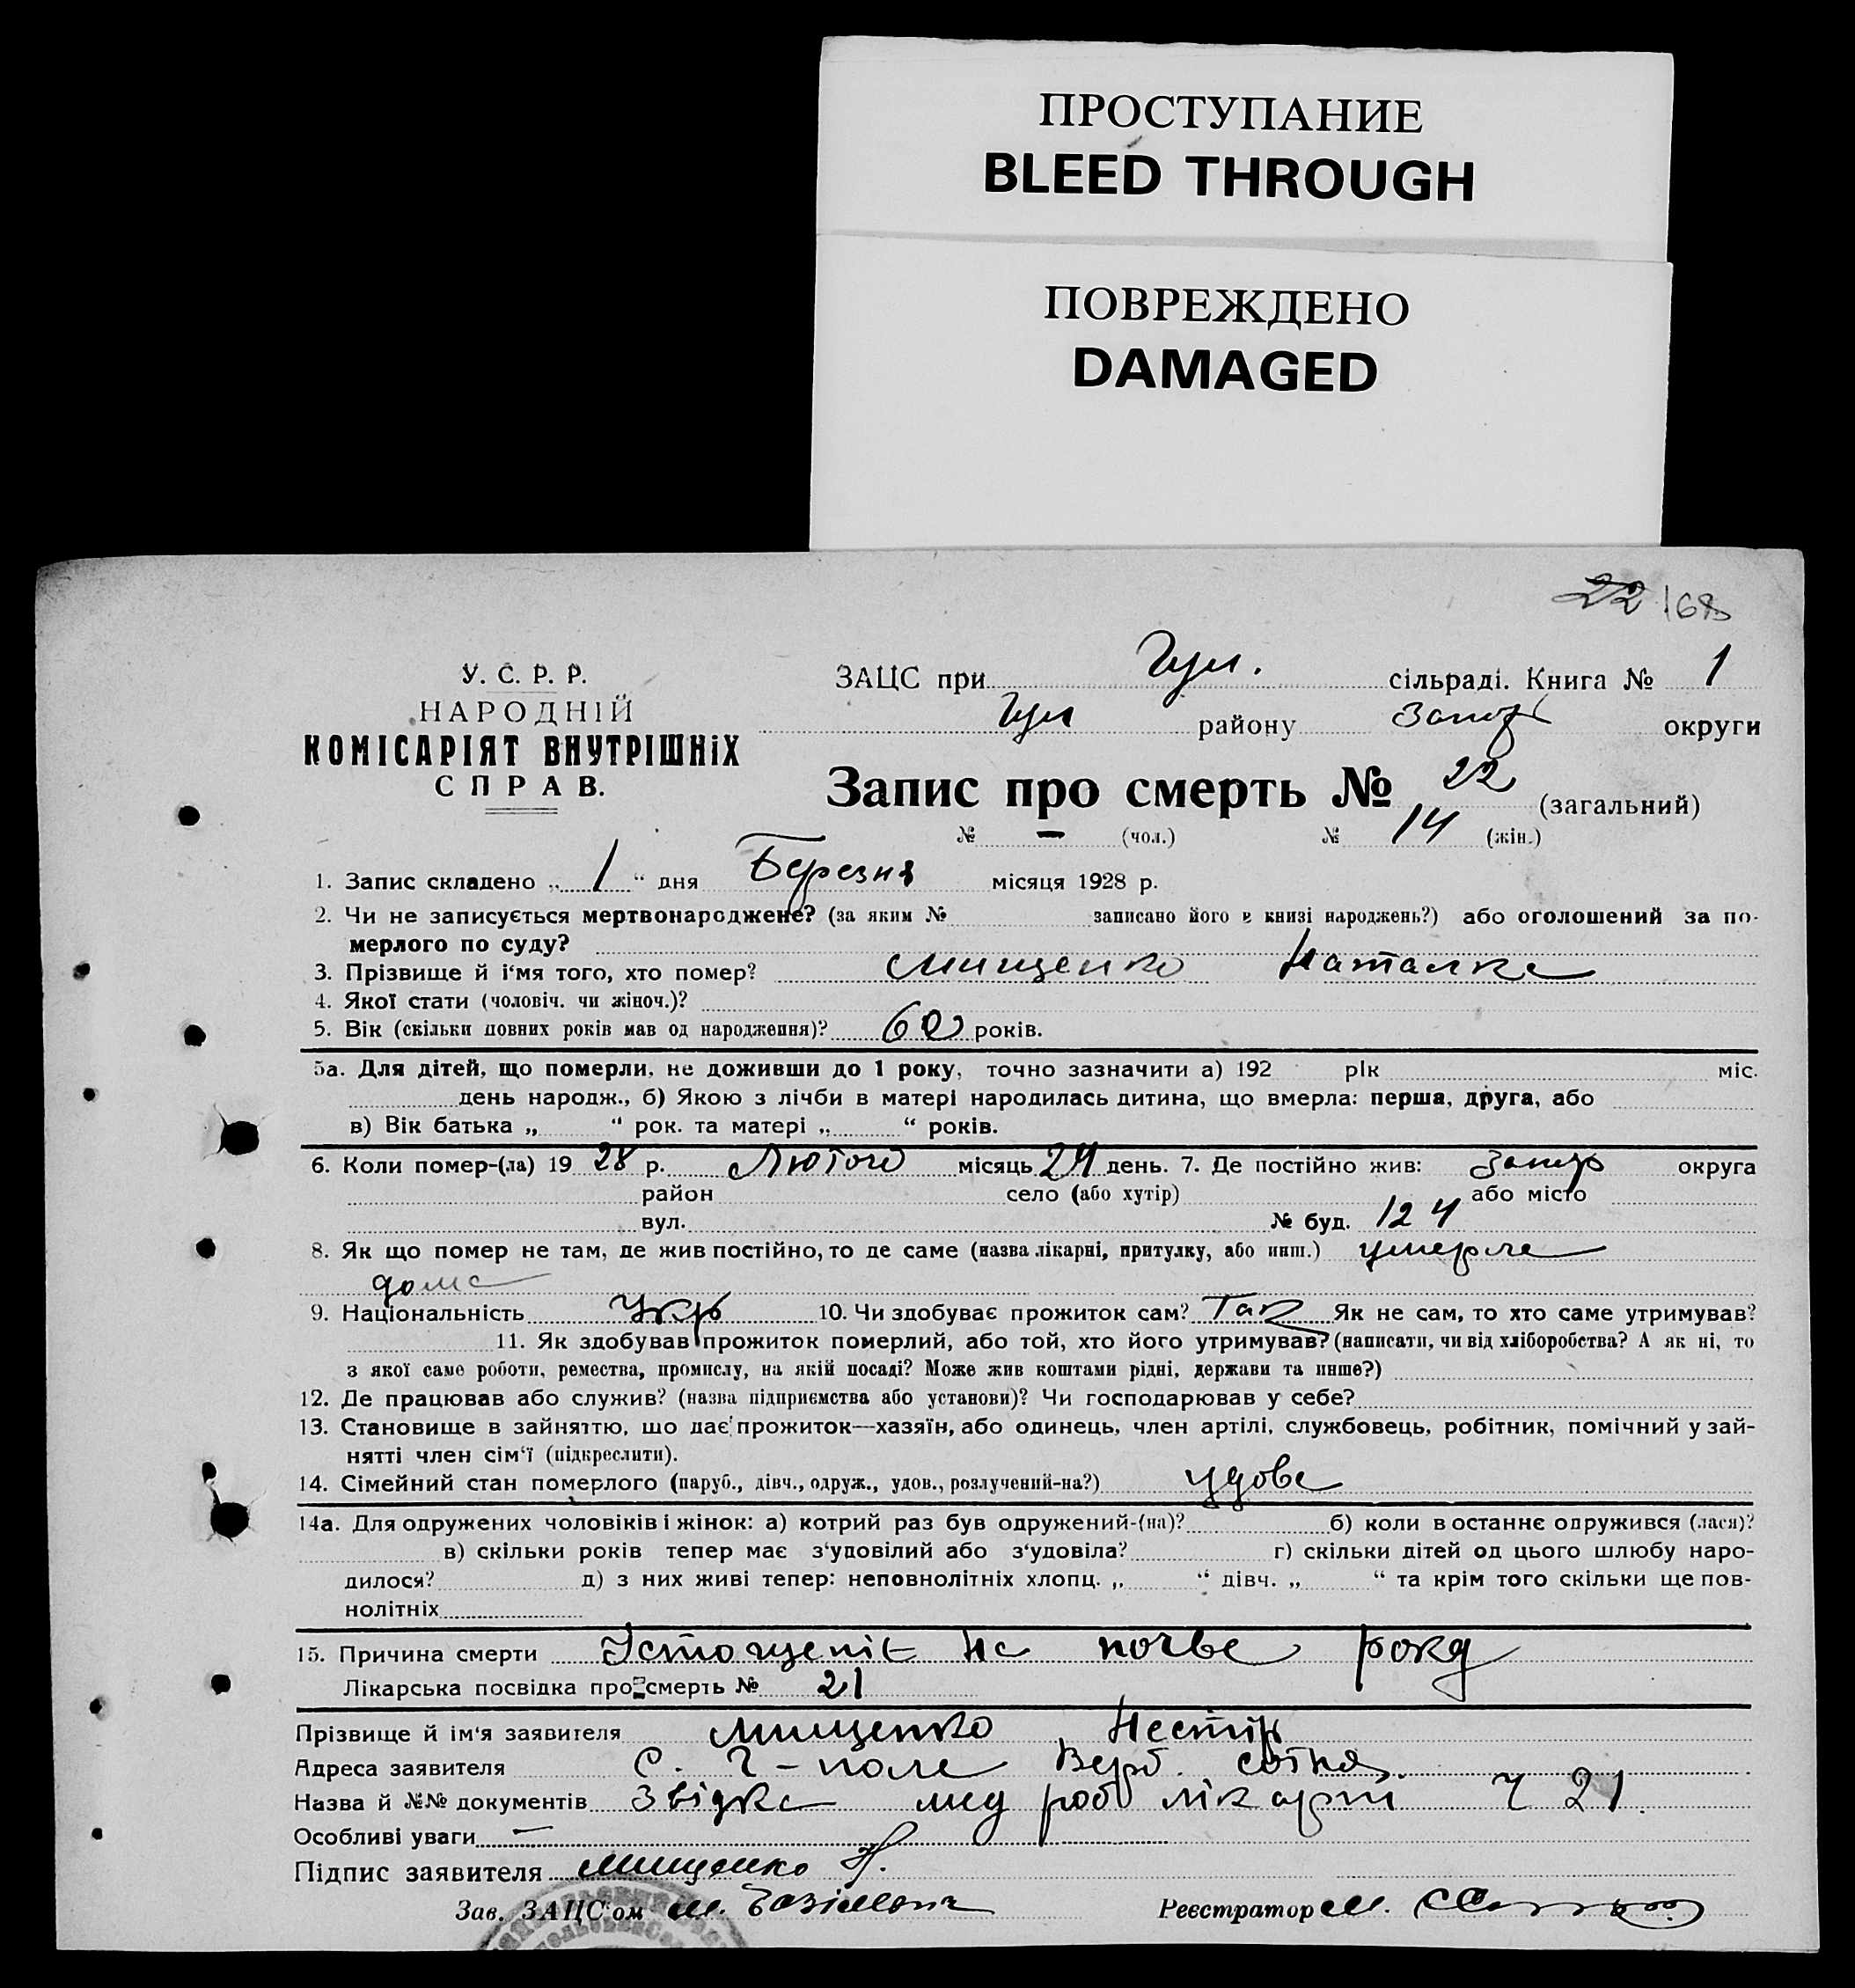 ПРОСТУПАНИЕ
BLEED THROUGH
ПОВРЕЖДЕНО
DAMAGED
22 168
У. С. Р. Р.
НАРОДНІЙ
КОМІСАРІЯТ ВНУТРІШНіХ
СПРАВ.
ЗАЦС при Гул. сільраді. Книга № 1
Гул району Запор округи
Запис про смерть № 22 (загальний)
№ — (чол.) № 14 (жін.)
1. Запис складено „ 1 “ дня Березня місяця 1928 р.
2. Чи не записується мертвонароджене? (за яким № записано його в книзі народжень?) або оголошений за по-
мерлого по суду?
3. Прізвище й і‘мя того, хто помер? Мищенко Наталка
4. Якої стати (чоловіч. чи жіноч.)?
5. Вік (скільки повних років мав од народження)? 60 років.
5а. Для дітей, що померли, не доживши до 1 року, точно зазначити а) 192 рік міс.
день народж., б) Якою з лічби в матері народилась дитина, що вмерла: перша, друга, або
в) Вік батька „ “ рок. та матері „ “ років.
6. Коли помер-(ла) 19 28 р. Лютого місяць 24 день. 7. Де постійно жив: Запор округа
район село (або хутір) або місто
вул. № буд. 124
8. Як що помер не там, де жив постійно, то де саме (назва лікарні, притулку, або инш.) умерла
дома
9. Національність Укр 10. Чи здобуває прожиток сам? Так Як не сам, то хто саме утримував?
11. Як здобував прожиток померлий, або той, хто його утримував? (написати, чи від хліборобства? А як ні, то
з якої саме роботи, ремества, промислу, на якій посаді? Може жив коштами рідні, держави та инше?)
12. Де працював або служив? (назва підприємства або установи)? Чи господарював у себе?
13. Становище в зайняттю, що дає прожиток—хазяїн, або одинець, член артілі, службовець, робітник, помічний у зай-
нятті член сім‘ї (підкреслити).
14. Сімейний стан померлого (паруб., дівч., одруж., удов., розлучений-на?) удова
14а. Для одружених чоловіків і жінок: а) котрий раз був одружений-(на)? б) коли в останнє одружився (лася)?
в) скільки років тепер має з‘удовілий або з‘удовіла? г) скільки дітей од цього шлюбу наро-
дилося? д) з них живі тепер: неповнолітніх хлопц. „ “ дівч. „ “ та крім того скільки ще пов-
нолітніх
15. Причина смерти Істощеніє на почве рока
Лікарська посвідка про смерть № 21
Прізвище й ім‘я заявителя Мищенко Нестір
Адреса заявителя С. Г-поле Верб. сотня.
Назва й №№ документів Звідка мед роб лікарні Ч 21.
Особливі уваги —
Підпис заявителя Мищенко Н.
Зав. ЗАЦС‘ом М.
Реєстратор М.